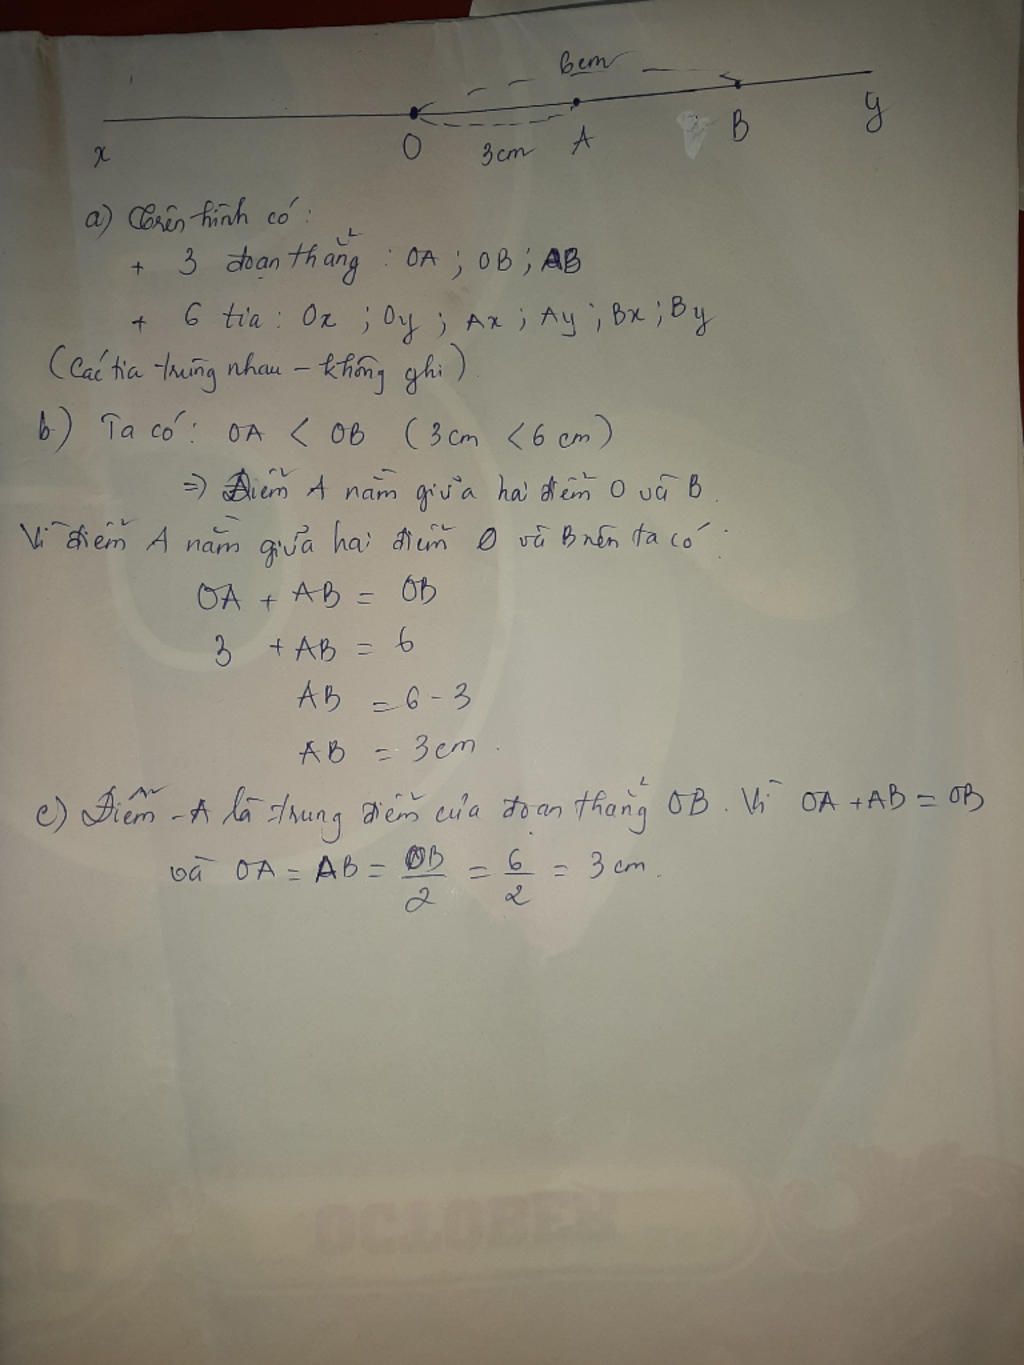 6cm
x O 3cm A B y
a) Trên hình có:
+ 3 đoạn thẳng: OA; OB; AB
+ 6 tia: Ox; Oy; Ax; Ay; Bx; By
(Các tia trùng nhau - không ghi)
b) Ta có: OA < OB (3cm < 6cm)
=> Điểm A nằm giữa hai điểm O và B.
Vì điểm A nằm giữa hai điểm O và B nên ta có:
OA + AB = OB
3 + AB = 6
AB = 6 - 3
AB = 3cm.
c) Điểm A là trung điểm của đoạn thẳng OB. Vì OA + AB = OB
và OA = AB = OB/2 = 6/2 = 3cm.
OCTOBER